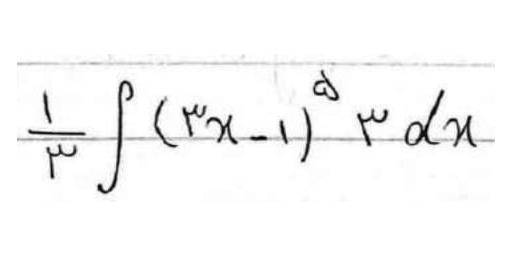 ۱/۳ ∫ (۳x-۱)^۵ ۳ dx